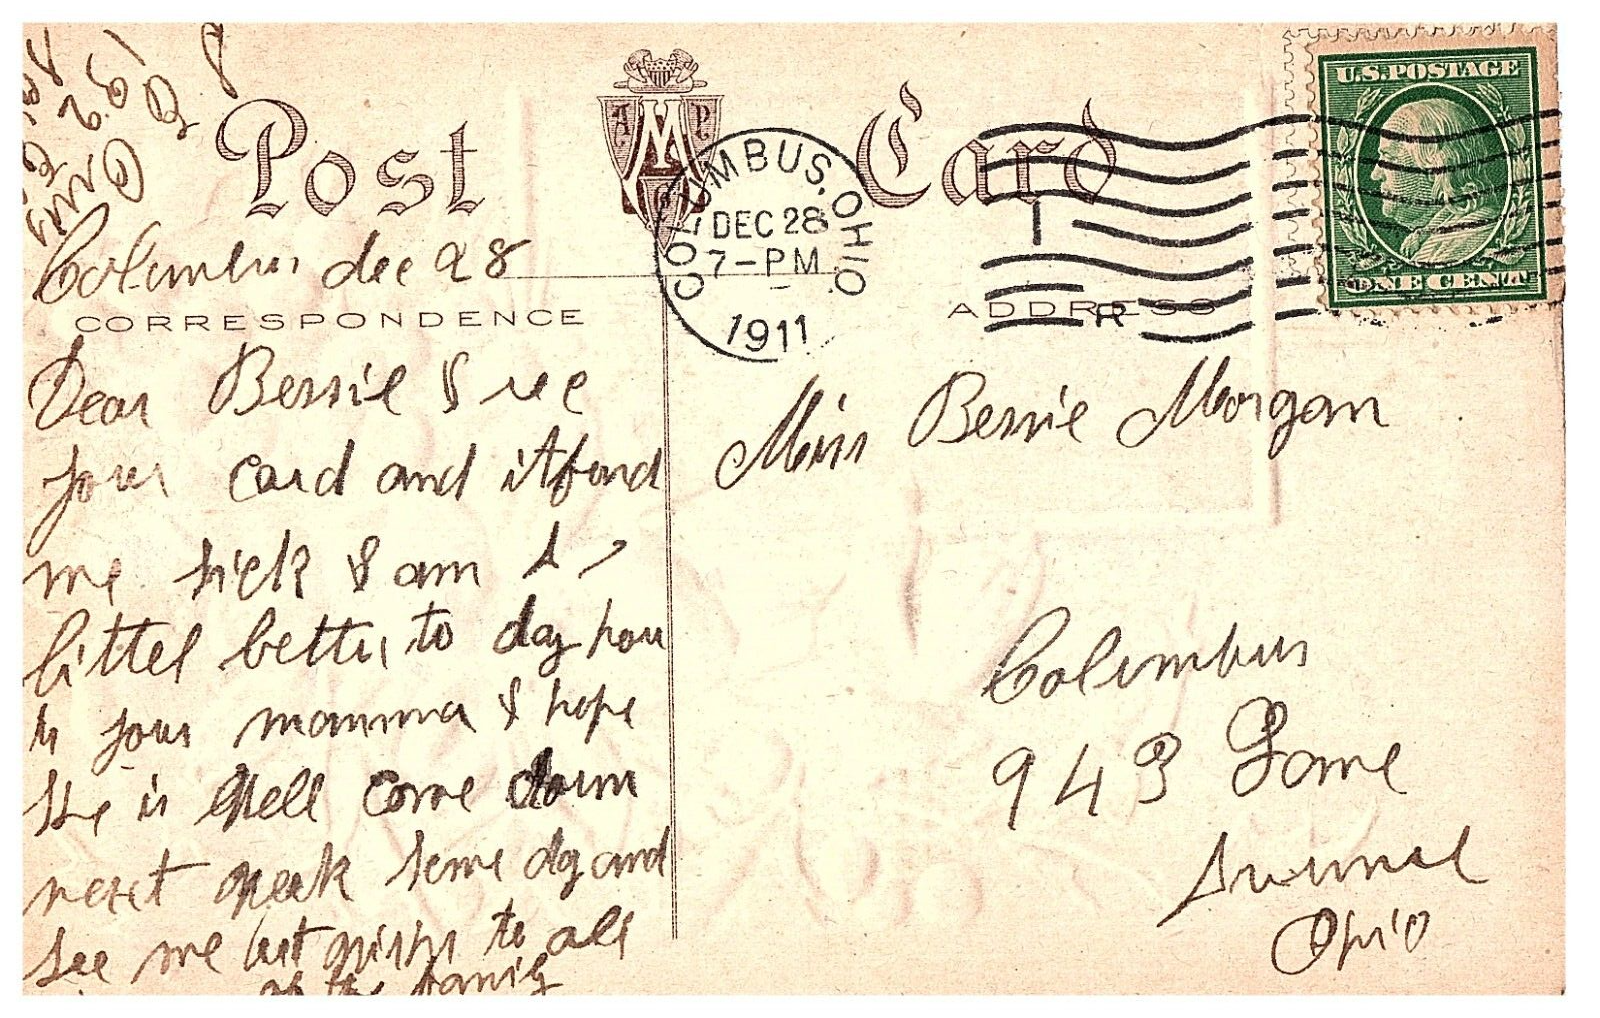 Post Card
A M P
COLUMBUS, OHIO
DEC 28
7-PM
1911
U.S. POSTAGE
ONE CENT
Columbus dec 28
CORRESPONDENCE
ADDRESS
R
Dear Bessie I rec
your card and it fond
me sick I am a
littel better to day how
is your mamma I hope
She is Well come down
next week some day and
see me best wishes to all
of the family
Miss Bessie Morgan
Columbus
943
Ohio